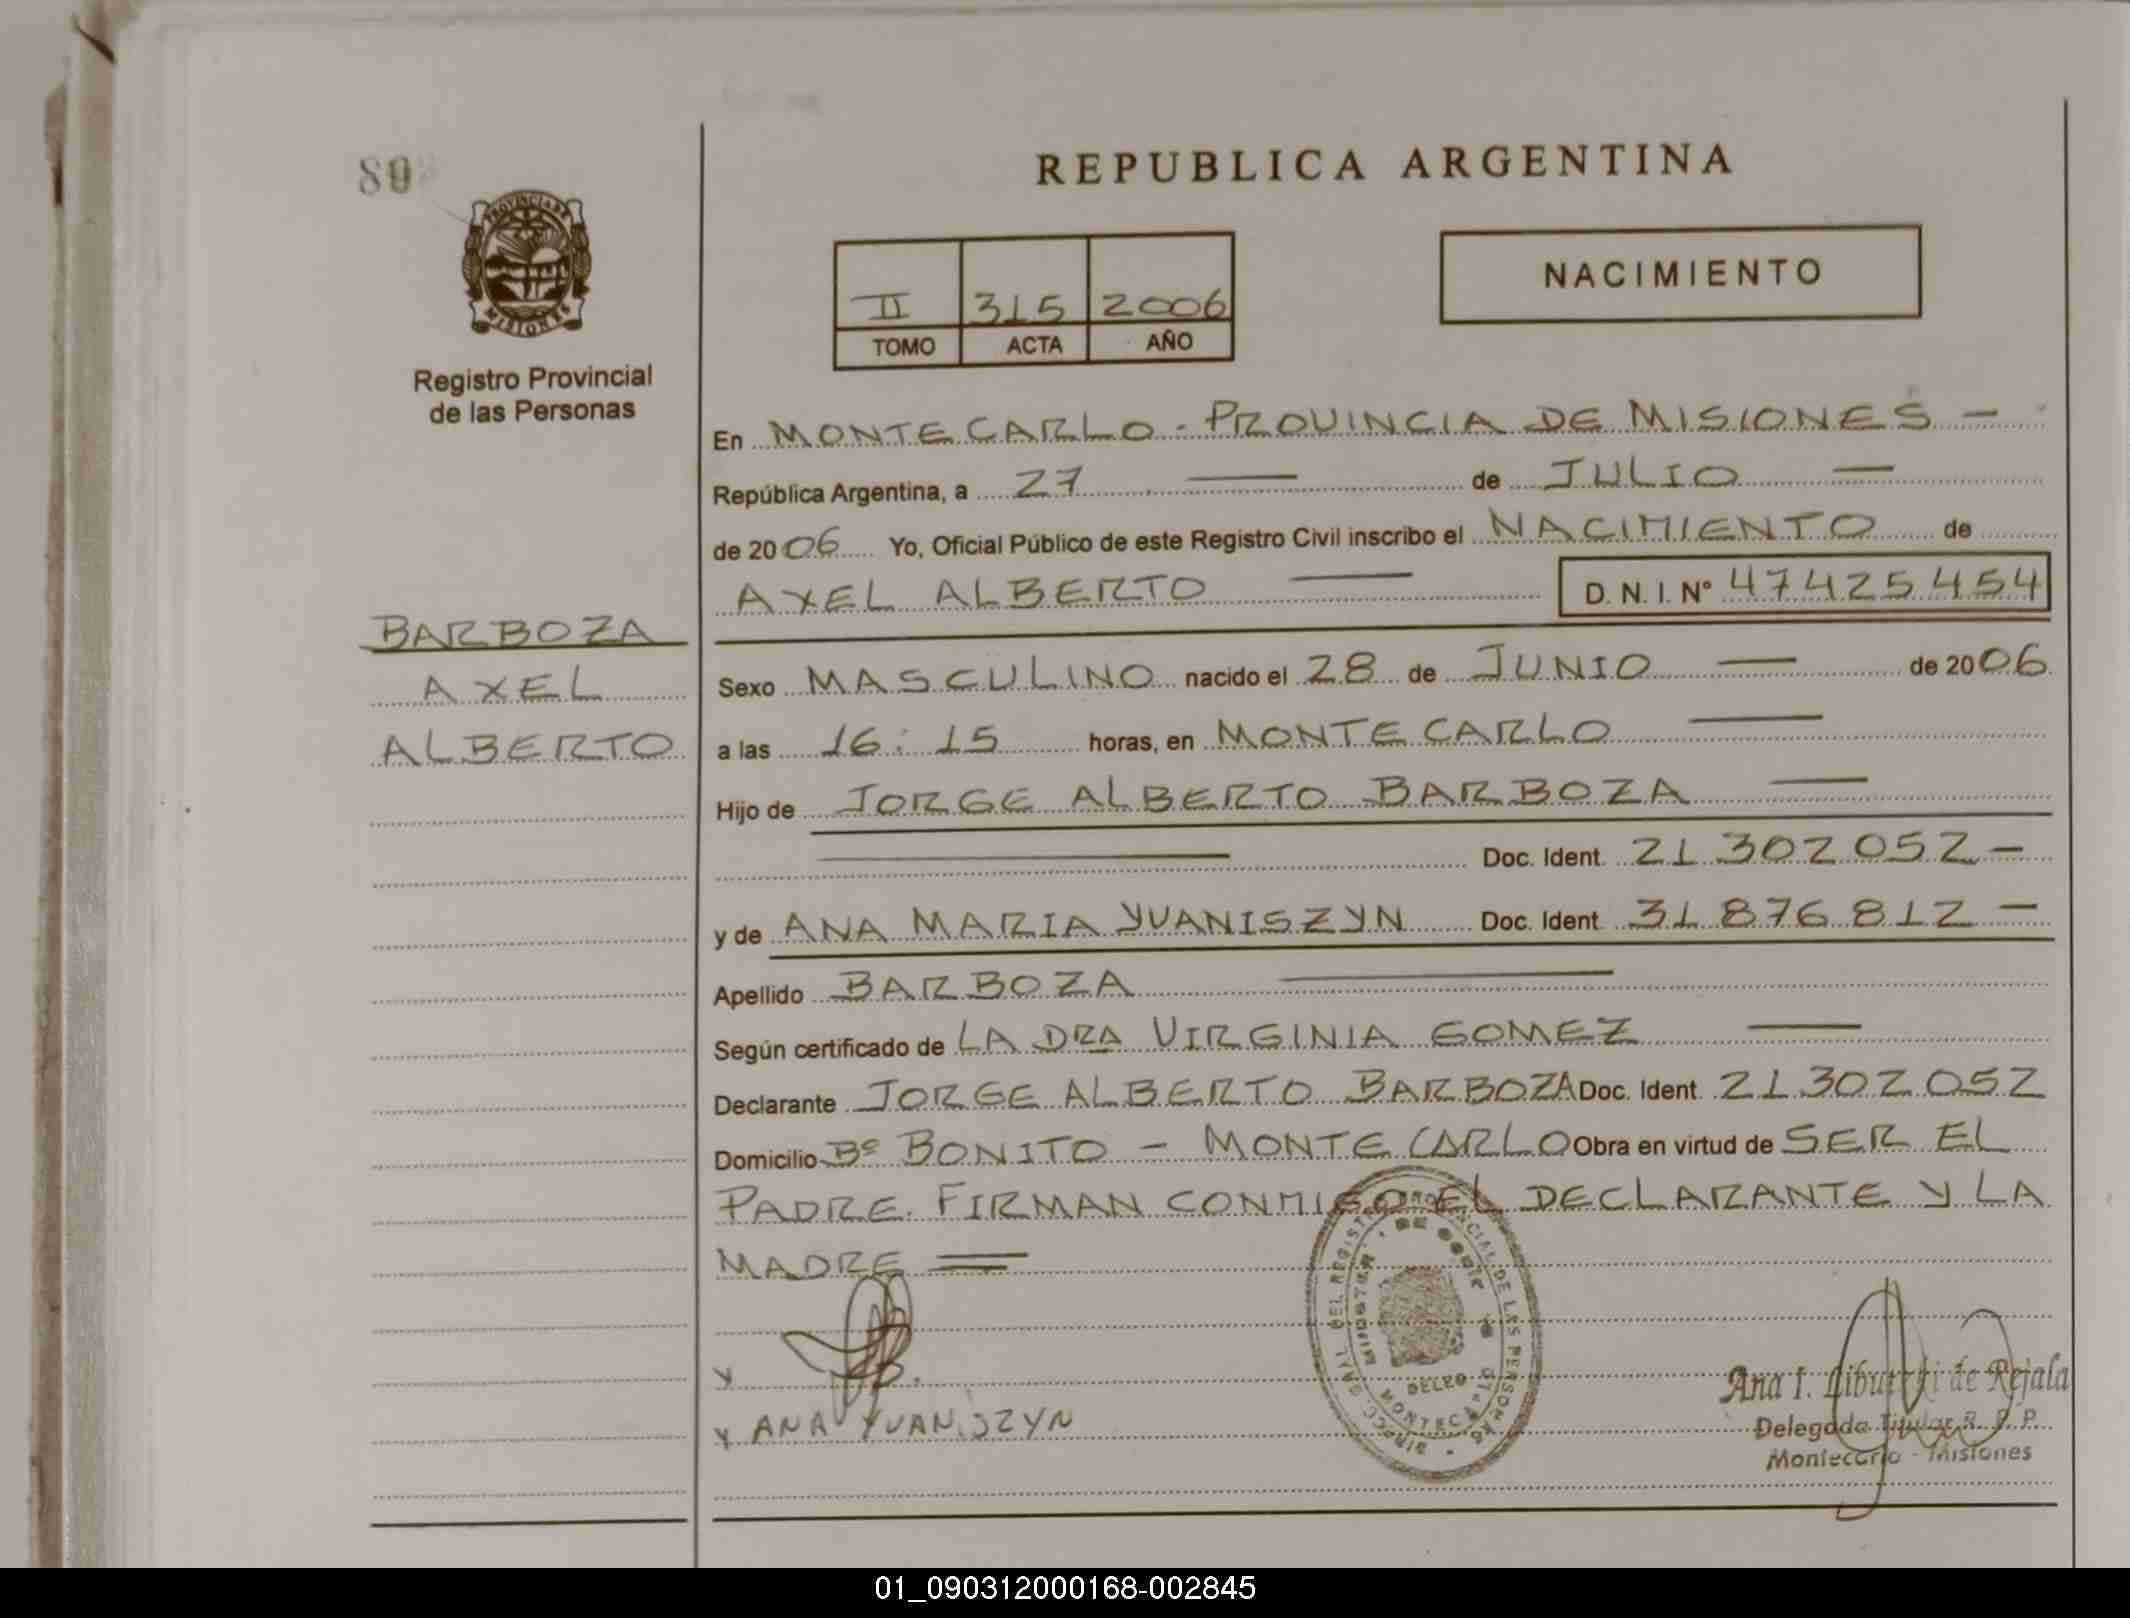 80
PROVINCIA DE
MISIONES
Registro Provincial
de las Personas
REPUBLICA ARGENTINA
II 315 2006
TOMO ACTA AÑO
NACIMIENTO
En MONTECARLO - PROVINCIA DE MISIONES -
República Argentina, a 27 de JULIO
de 2006 Yo, Oficial Público de este Registro Civil inscribo el NACIMIENTO de
AXEL ALBERTO D. N. I. Nº 47425454
BARBOZA
AXEL
ALBERTO
Sexo MASCULINO nacido el 28 de JUNIO de 2006
a las 16:15 horas, en MONTECARLO
Hijo de JORGE ALBERTO BARBOZA
Doc. Ident. 21 302 052 -
y de ANA MARIA YUANISZYN Doc. Ident. 31 876 812 -
Apellido BARBOZA
Según certificado de LA DRA VIRGINIA GOMEZ
Declarante JORGE ALBERTO BARBOZA Doc. Ident. 21 302 052
Domicilio Bº BONITO - MONTECARLO Obra en virtud de SER EL
PADRE. FIRMAN CONMIGO EL DECLARANTE Y LA
MADRE
ANA YUANISZYN
DEL REGISTRO PROVINCIAL DE LAS PERSONAS
MONTECARLO
Ana I. de Rejala
Delegada Titular R. P. P.
Montecarlo - Misiones
01_090312000168-002845